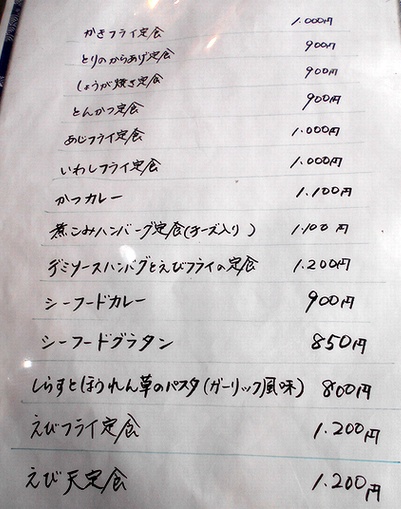 かきフライ定食 1.000円
とりのからあげ定食 900円
しょうが焼き定食 900円
とんかつ定食 900円
あじフライ定食 1.000円
いわしフライ定食 1.000円
かつカレー 1.100円
煮こみハンバーグ定食(チーズ入り) 1.100円
デミソースハンバグとえびフライの定食 1.200円
シーフードカレー 900円
シーフードグラタン 850円
しらすとほうれん草のパスタ(ガーリック風味) 800円
えびフライ定食 1.200円
えび天定食 1.200円